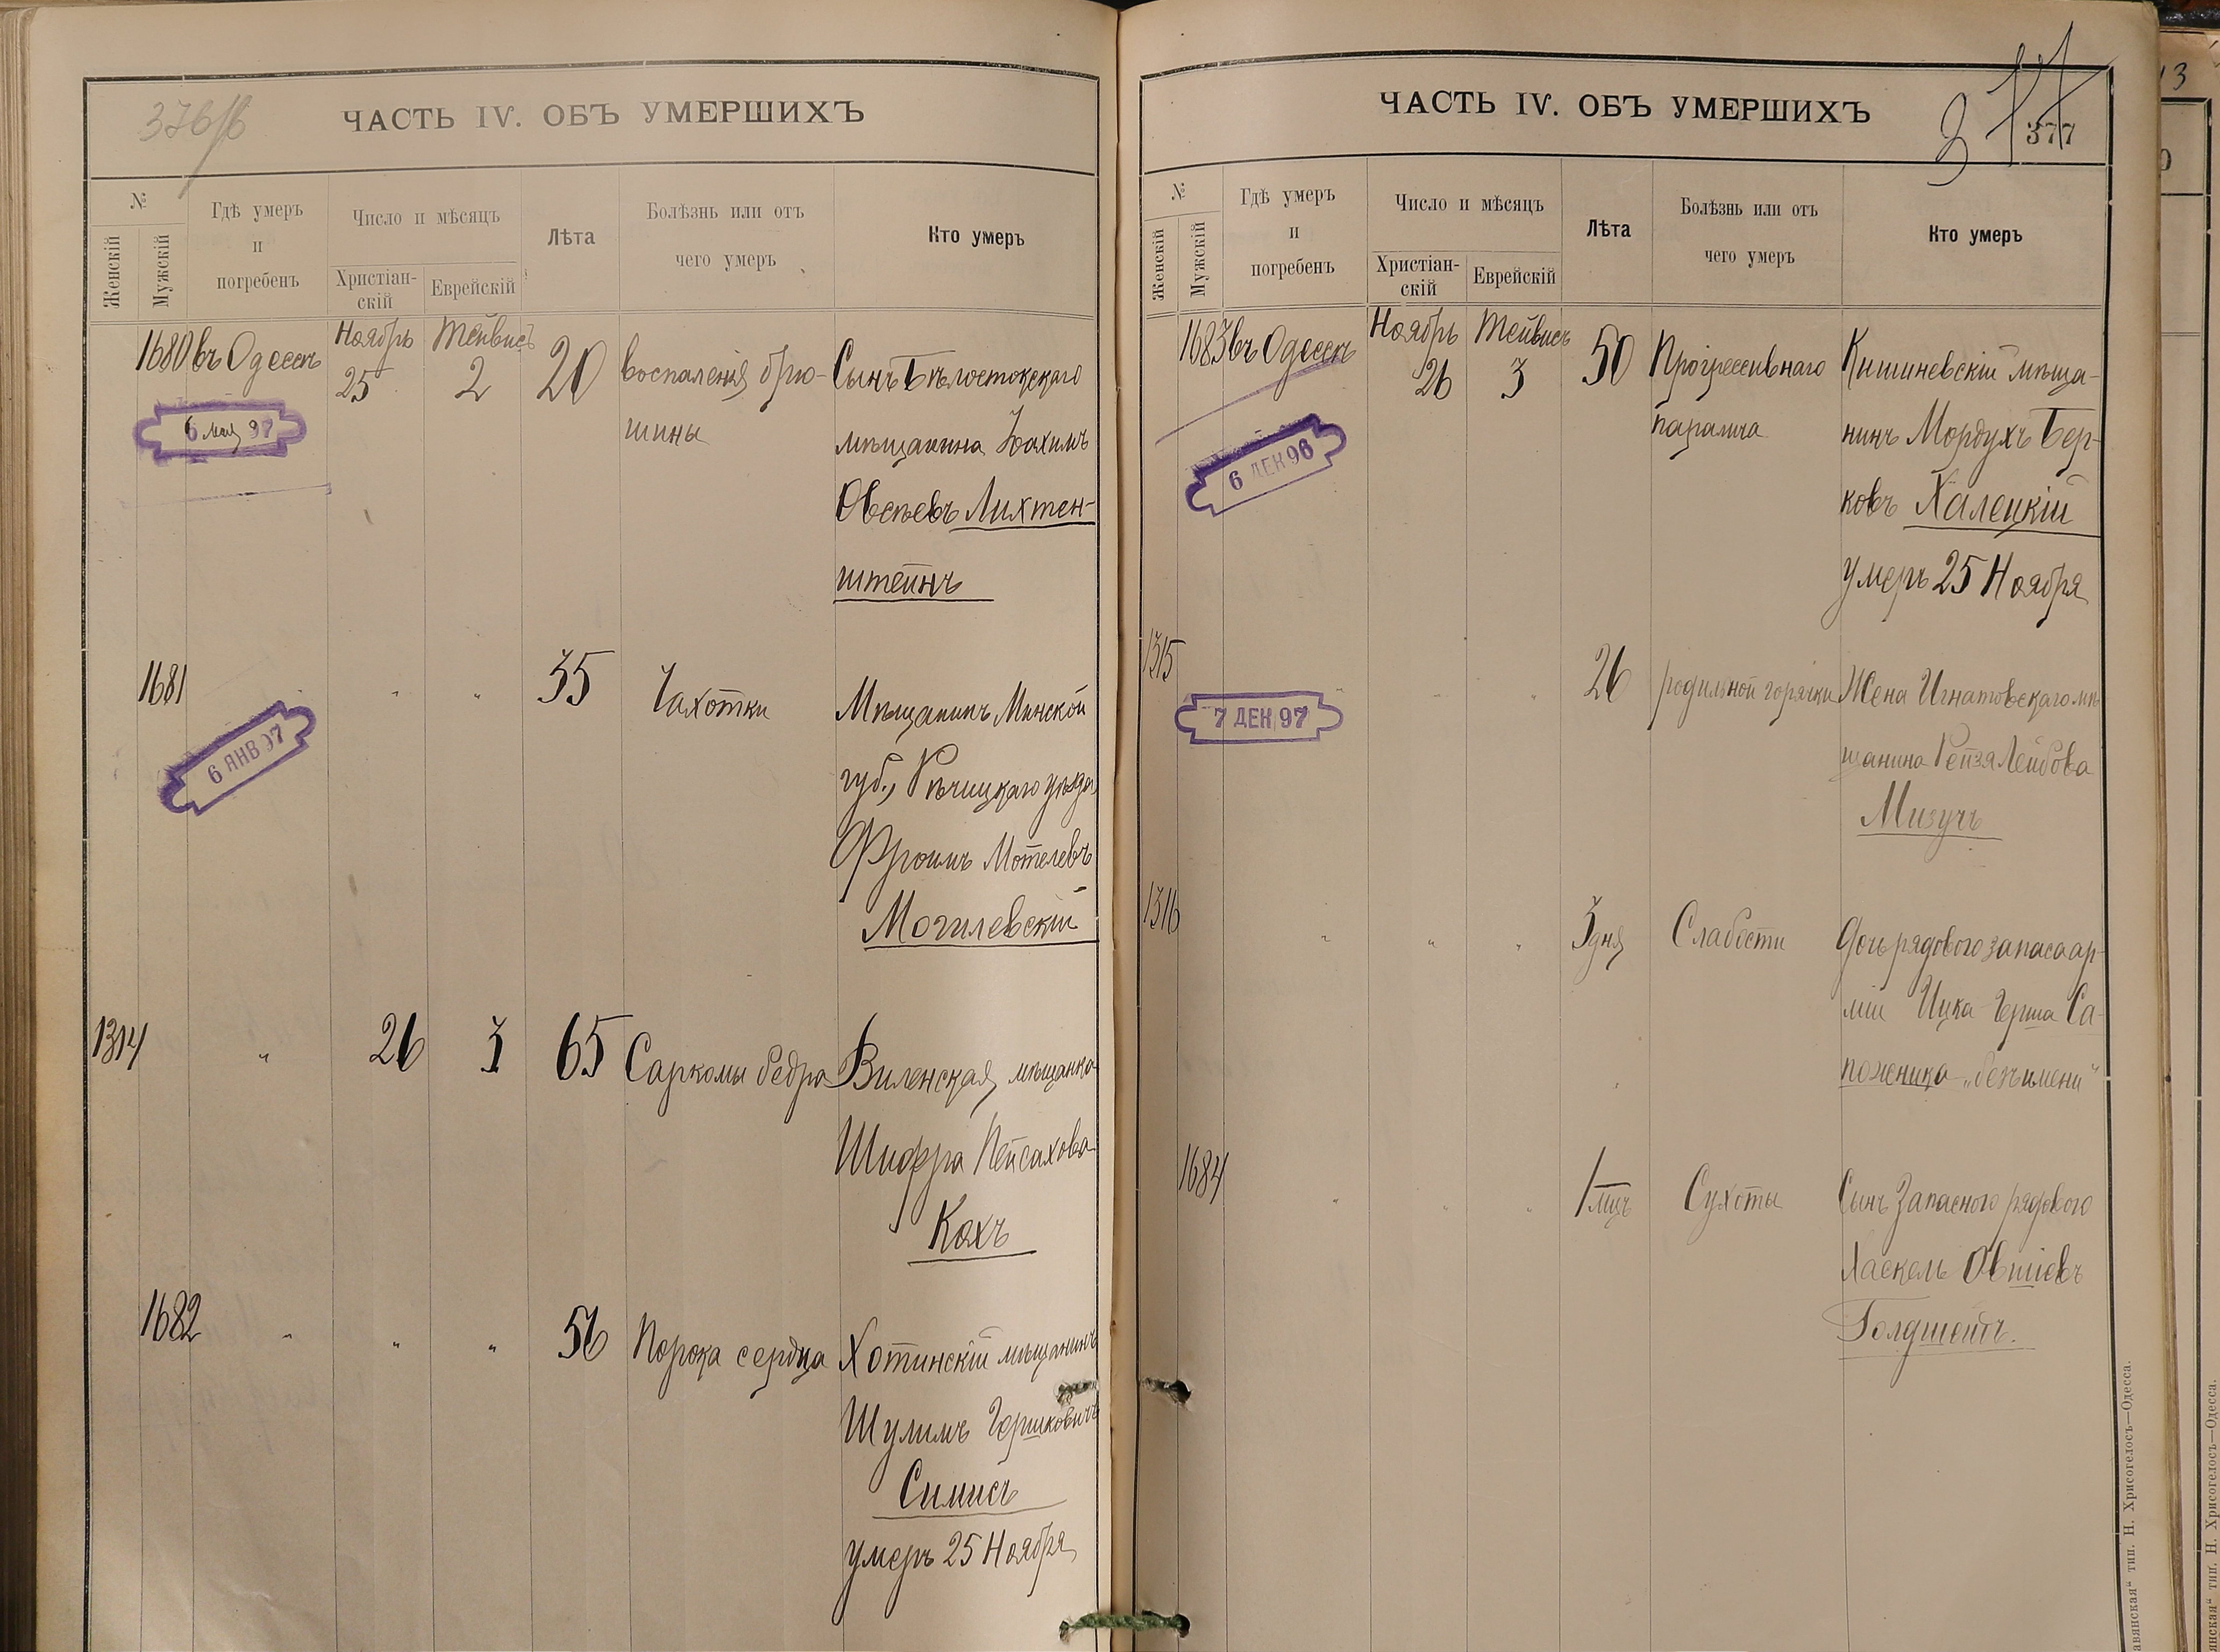 376/б
ЧАСТЬ IV. ОБЪ УМЕРШИХЪ
№
Женскій
Мужскій
Гдѣ умеръ
и
погребенъ
Число и мѣсяцъ
Христіан-
скій
Еврейскій
Лѣта
Болѣзнь или отъ
чего умеръ
Кто умеръ
1680 въ Одессѣ Ноябрь 25 Тейвисъ 2 20 воспаленія брю-
шины
Сынъ Бѣлостокскаго
мѣщанина Іоахимъ
Овсѣевъ Лихтен-
штейнъ
6 мая 97
1681 " " 35 Чахотки Мѣщанинъ Минской
губ., Рѣчицкаго уѣзда
Фроимъ Мотелевъ
Могилевскій
6 ЯНВ 97
1314 " 26 3 65 Саркомы бедра Виленская мѣщанка
Шифра Пейсахова
Кахъ
1682 " " " 56 Порока сердца Хотинскій мѣщанинъ
Шулимъ Гершковичъ
Симисъ
умеръ 25 Ноября
ЧАСТЬ IV. ОБЪ УМЕРШИХЪ
377
377
№
Женскій
Мужскій
Гдѣ умеръ
и
погребенъ
Число и мѣсяцъ
Христіан-
скій
Еврейскій
Лѣта
Болѣзнь или отъ
чего умеръ
Кто умеръ
1683 въ Одессѣ Ноябрь 26 Тейвисъ 3 50 Прогрессивнаго
паралича
Кишиневскій мѣща-
нинъ Мордухъ Бер-
ковъ Халецкій
умеръ 25 Ноября
6 ДЕК 96
1315 26 родильной горячки Жена Игнатовскаго мѣ
щанина Рейзя Лейбова
Мизучъ
7 ДЕК 97
1316 " " " 3 дня Слабости Дочь рядового запаса ар-
міи Ицка Герша Са-
пожника „безъ имени"
1684 " " " 1 мцъ Сухоты Сынъ Запаснаго рядового
Хаскель Овшіевъ
Голдшейтъ.
тип. Н. Хрисогелосъ—Одесса.
тип. Н. Хрисогелосъ—Одесса.